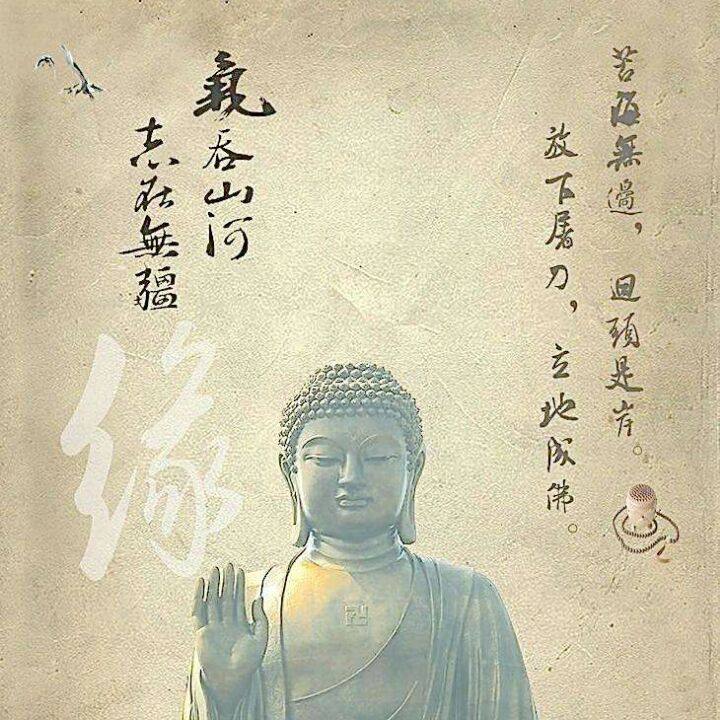 苦海無過，回頭是岸。
放下屠刀，立地成佛。
氣吞山河
志在無疆
缘
卍